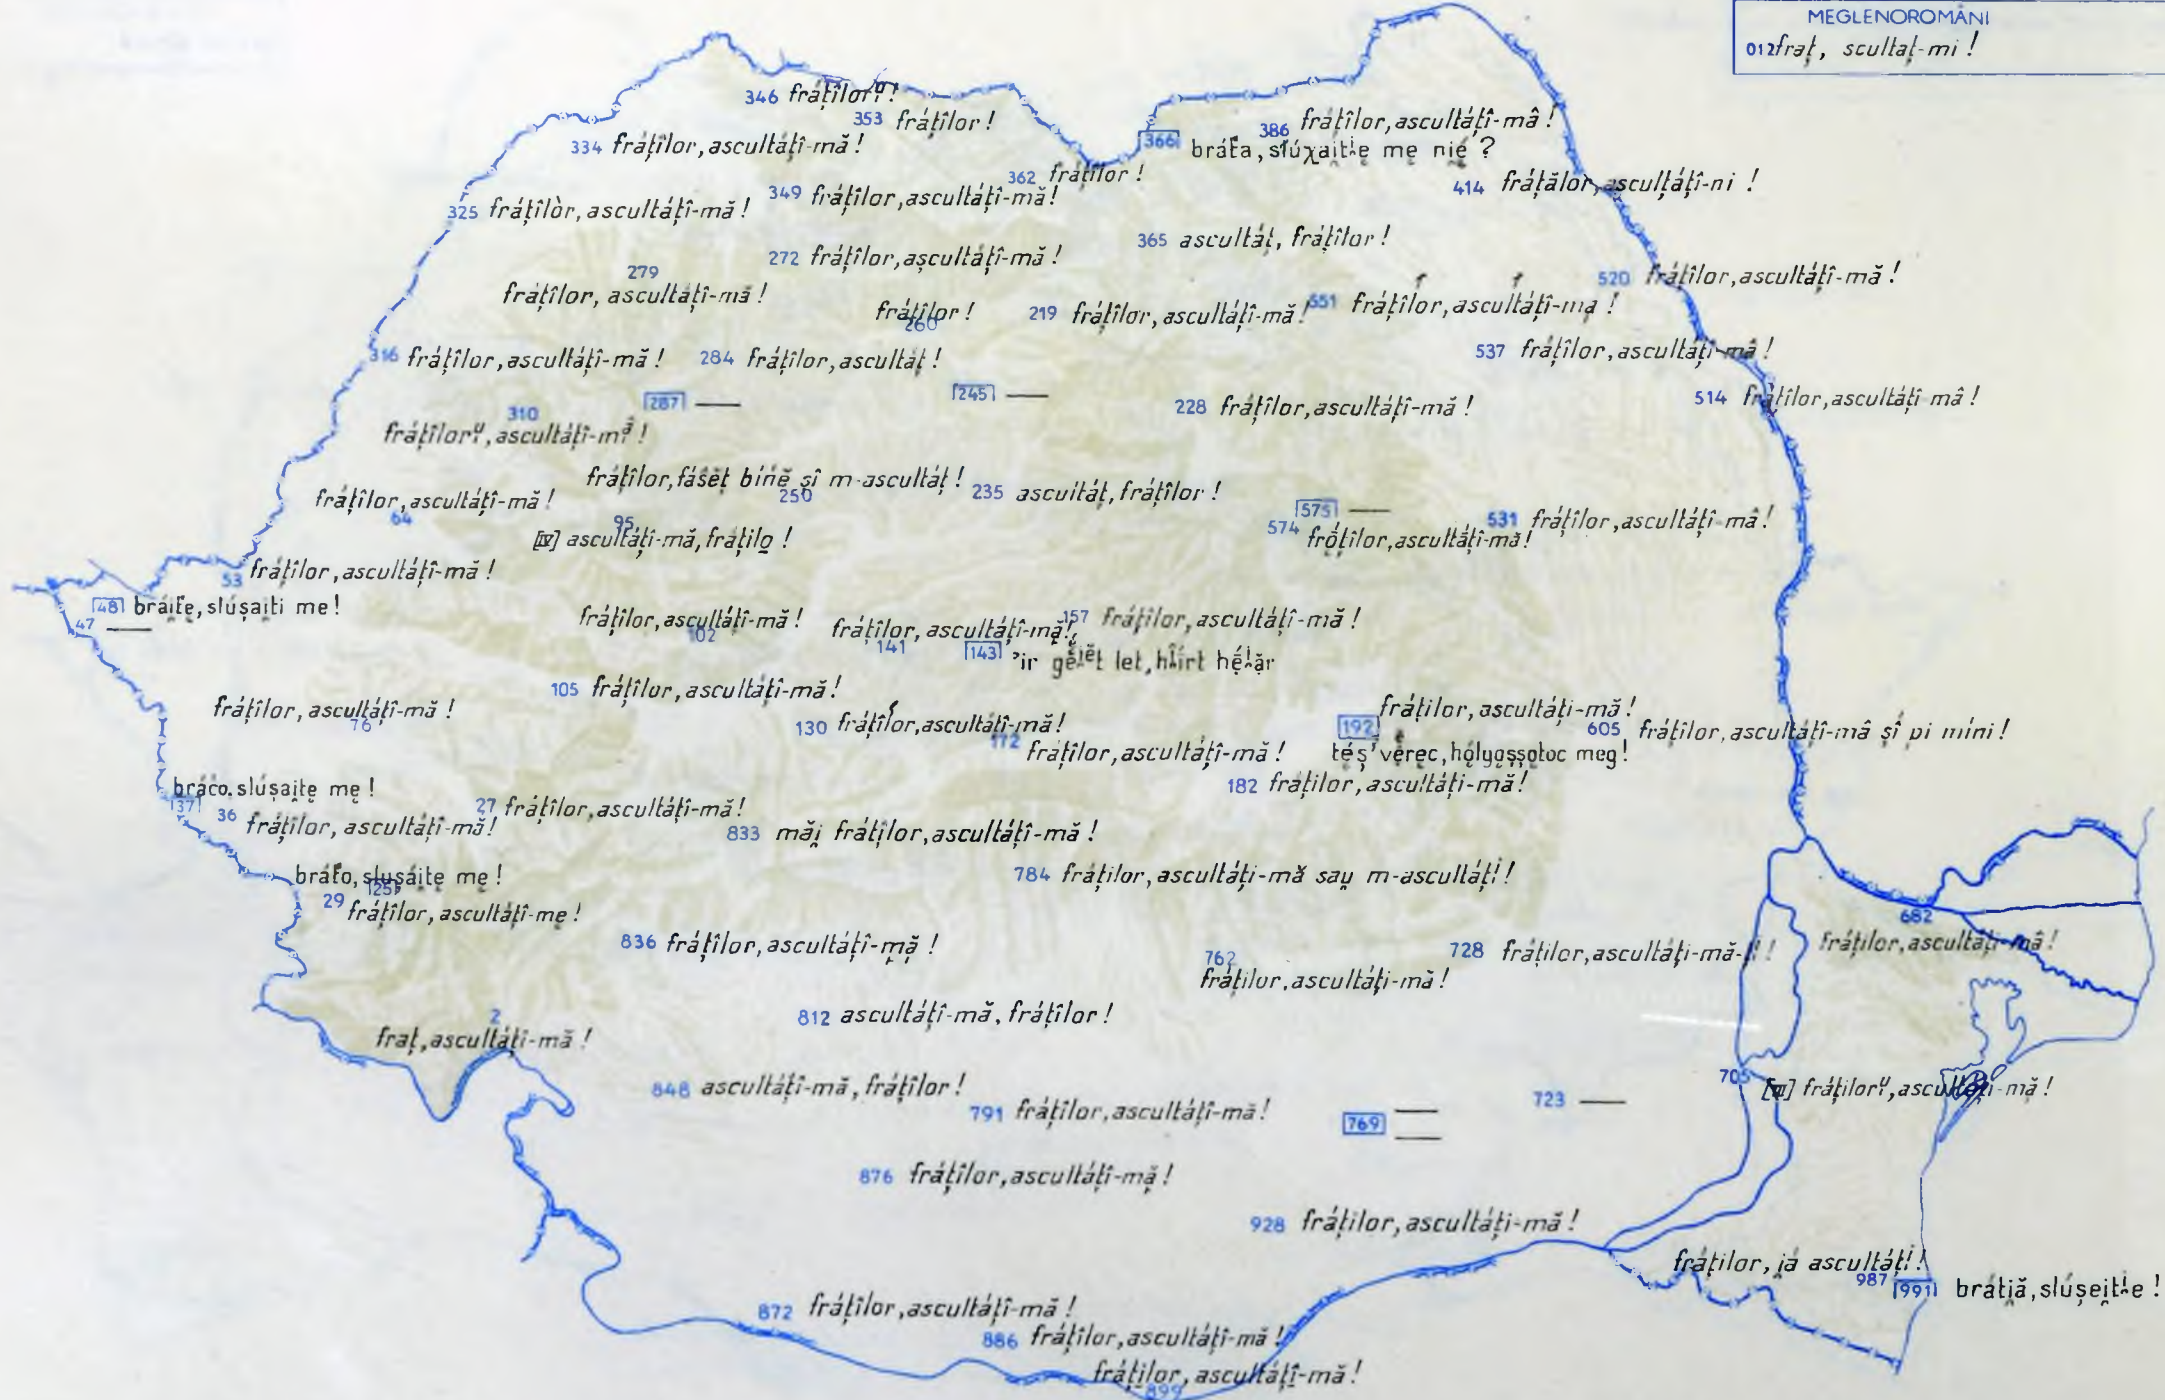 MEGLENOROMÂNI
012 fraț, scultaț-mi !
346 fráțîlorᵘ̯ !
353 frațîlor !
334 fráțîlor, ascultáțî-mă !
386 frățîlor, ascultáțî-mâ !
366 bráťa, slúχai̯tᶤe mę nié ?
362 fráțîlor !
414 frățălor, ascultáțî-ni !
325 fráțîlòr, ascultáțî-mă !
349 fráțîlor, ascultáțî-mă !
365 ascultáț, fráțîlor !
272 fráțîlor, ascultáțî-mă !
279 fráțîlor, ascultáțî-mă !
520 frățîlor, ascultáțî-mă !
260 fráțîlor !
219 fráțîlor, ascultáțî-mă !
551 fráțîlor, ascultáțî-mą !
537 fráțîlor, ascultáți-mâ !
316 fráțîlor, ascultáțî-mă !
284 fráțîlor, ascultáț !
287 —
245 —
228 fráțîlor, ascultáțî-mă !
514 frățîlor, ascultáți mâ !
310 fráțîlorᵘ̯, ascultáțî-mᵃ̆ !
250 fráțîlor, fásĕț bińĕ șî m-ascultáț !
235 ascultáț, fráțîlor !
64 fráțîlor, ascultáțî-mă !
575 —
574 frốțîlor, ascultắțî-mă !
531 fráțîlor, ascultáți-mâ !
95 [IV] ascultáțî-mă, frațîlo̲ !
53 fráțîlor, ascultáțî-mă !
48 brái̯ťe, slúșai̯ti me !
47 —
102 fráțîlor, ascultáțî-mă !
141 fráțîlor, ascultáțî-mă !
157 fráțîlor, ascultáțî-mă !
143 ˀir gĕ́lĕt let, hîírt hélăr
105 fráțîlor, ascultáțî-mă !
76 fráțîlor, ascultáțî-mă !
130 fráțîlor, ascultáțî-mă !
172 frațîlor, ascultáțî-mă !
192 fráțîlor, ascultáți-mă !
téș'vĕrec, hólgoșșotoc meg !
605 frățîlor, ascultáțî-mâ șî pi míni !
182 frațîlor, ascultáți-mă !
37 bráco, slúșai̯te mę !
36 fráțîlor, ascultáțî-mă !
27 fráțîlor, ascultáțî-mă !
833 măi̯ fráțîlor, ascultáțî-mă !
25 bráťo, slușái̯te mę !
29 fráțîlor, ascultáțî-mę !
784 fráțîlor, ascultáți-mă sau̯ m-ascultáțⁱ !
836 fráțîlor, ascultáțî-mă̦ !
762 fráțîlor, ascultáți-mă !
728 fráțîlor, ascultáți-mă !
682 frățîlor, ascultáți-mâ !
812 ascultáțî-mă, fráțîlor !
2 fraț, ascultáți-mă !
848 ascultáțî-mă, fráțîlor !
791 fráțîlor, ascultáțî-mă !
769 —
—
723 —
705 [III] fráțîlorᵘ̯, ascultáți-mă !
876 fráțîlor, ascultáțî-mă !
928 fráțîlor, ascultáți-mă !
987 fráțîlor, i̯á ascultáțⁱ !
991 bráti̯ă, slúșei̯tᶤe !
872 fráțîlor, ascultáțî-mă !
886 fráțîlor, ascultáțî-mă !
899 fráțîlor, ascultáțî-mă !